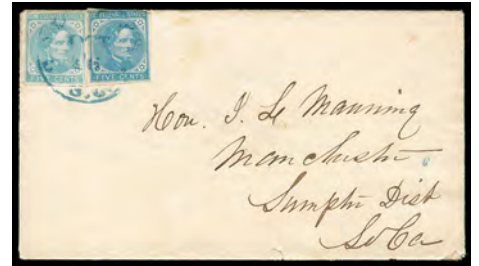 FIVE CENTS FIVE CENTS
Hon. J. L. Manning
Manchester
Sumpter Dist
So Ca